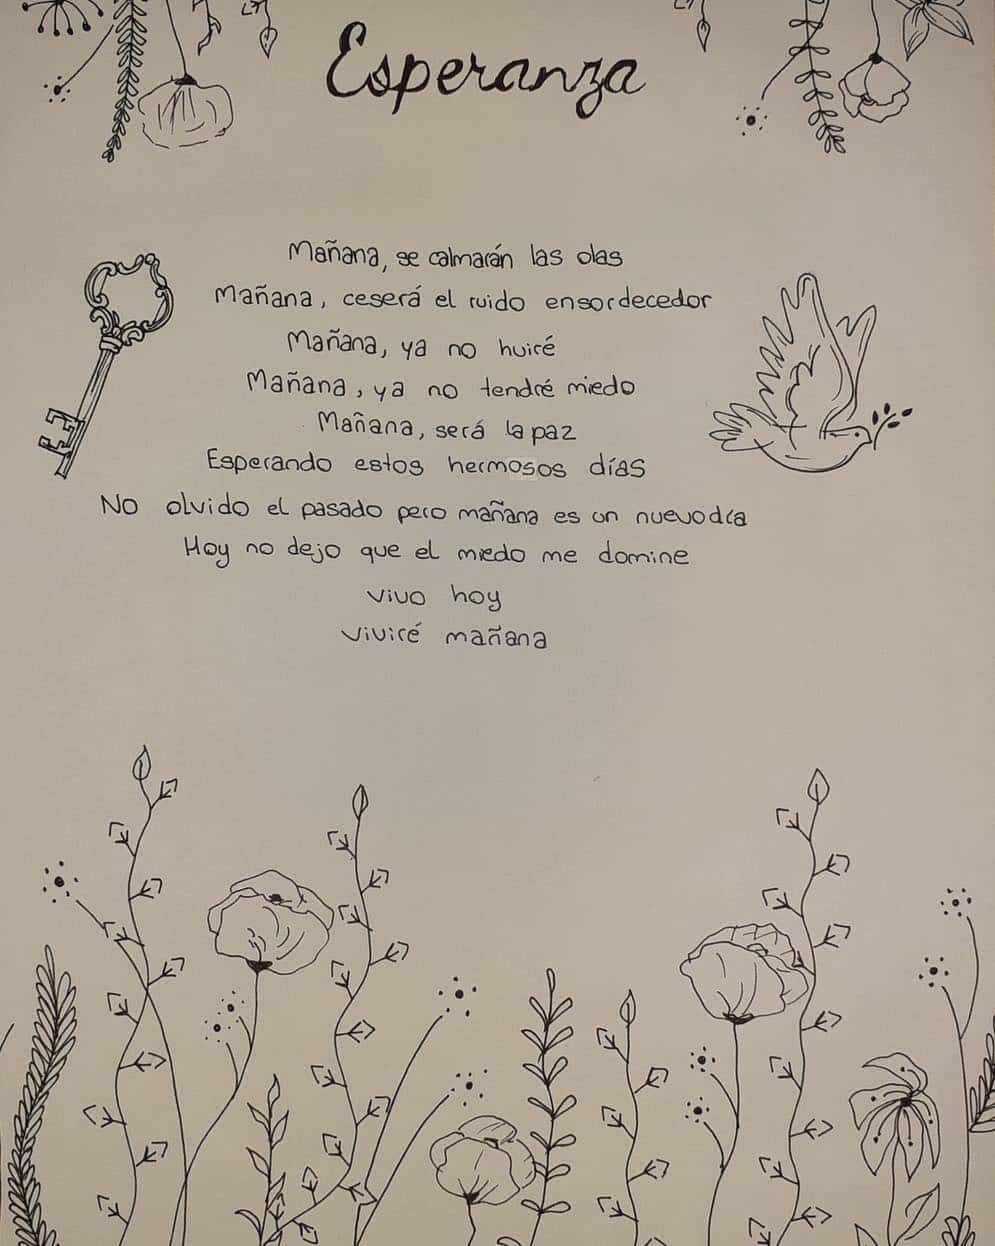 Esperanza
Mañana, se calmarán las olas
Mañana, ceserá el ruido ensordecedor
Mañana, ya no huiré
Mañana, ya no tendré miedo
Mañana, será la paz
Esperando estos hermosos días
No olvido el pasado pero mañana es un nuevo día
Hoy no dejo que el miedo me domine
vivo hoy
viviré mañana